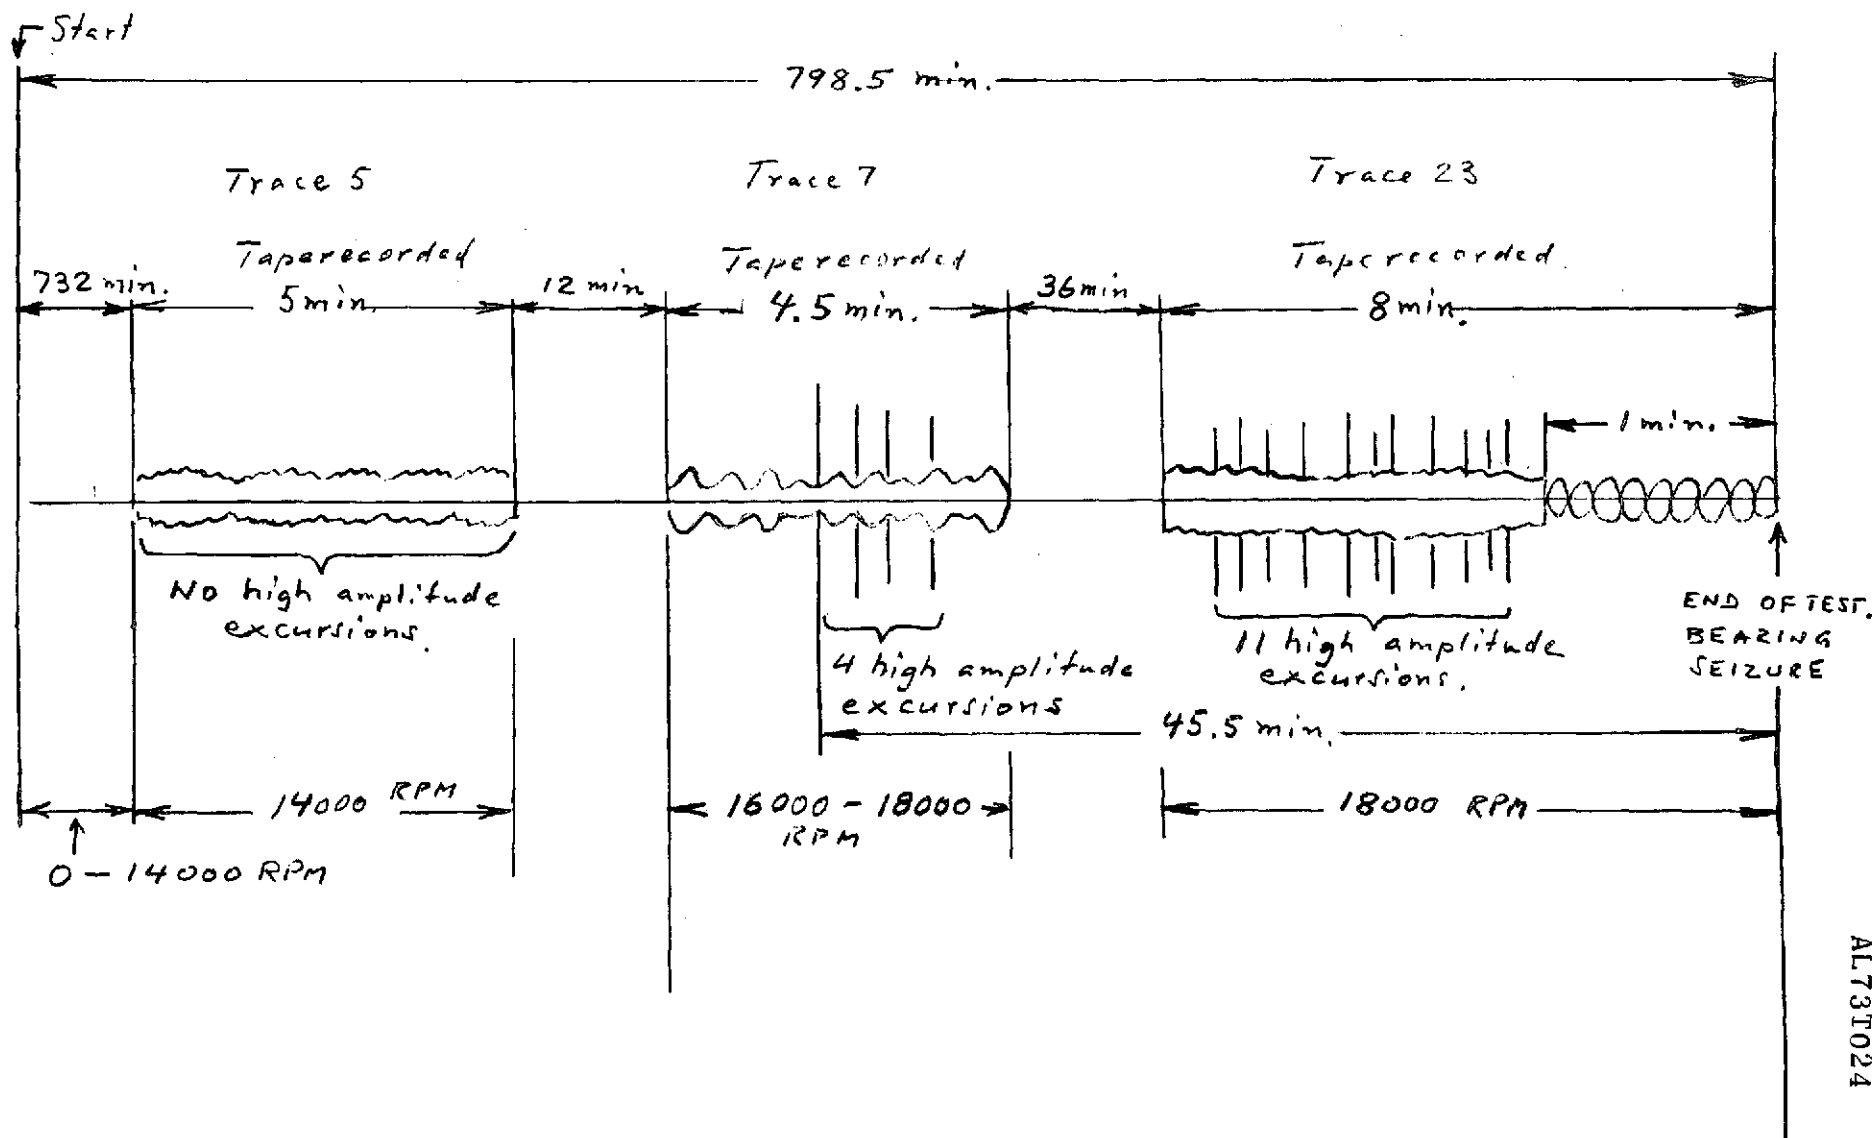 Start
798.5 min.
Trace 5
Trace 7
Trace 23
Taperecorded
Taperecorded
Taperecorded.
732 min.
5 min.
12 min
4.5 min.
36 min
8 min.
1 min.
No high amplitude
excursions.
4 high amplitude
excursions
11 high amplitude
excursions.
END OF TEST.
BEARING
SEIZURE
45.5 min.
14000 RPM
16000 - 18000
RPM
18000 RPM
0 - 14000 RPM
AL73T024